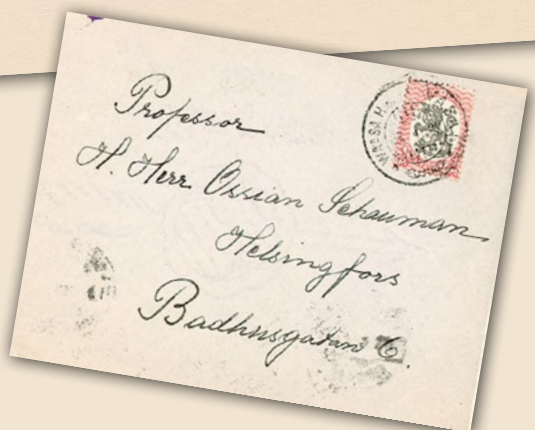 Professor
H. Herr Ossian Schauman.
Helsingfors
Badhusgatan 6.